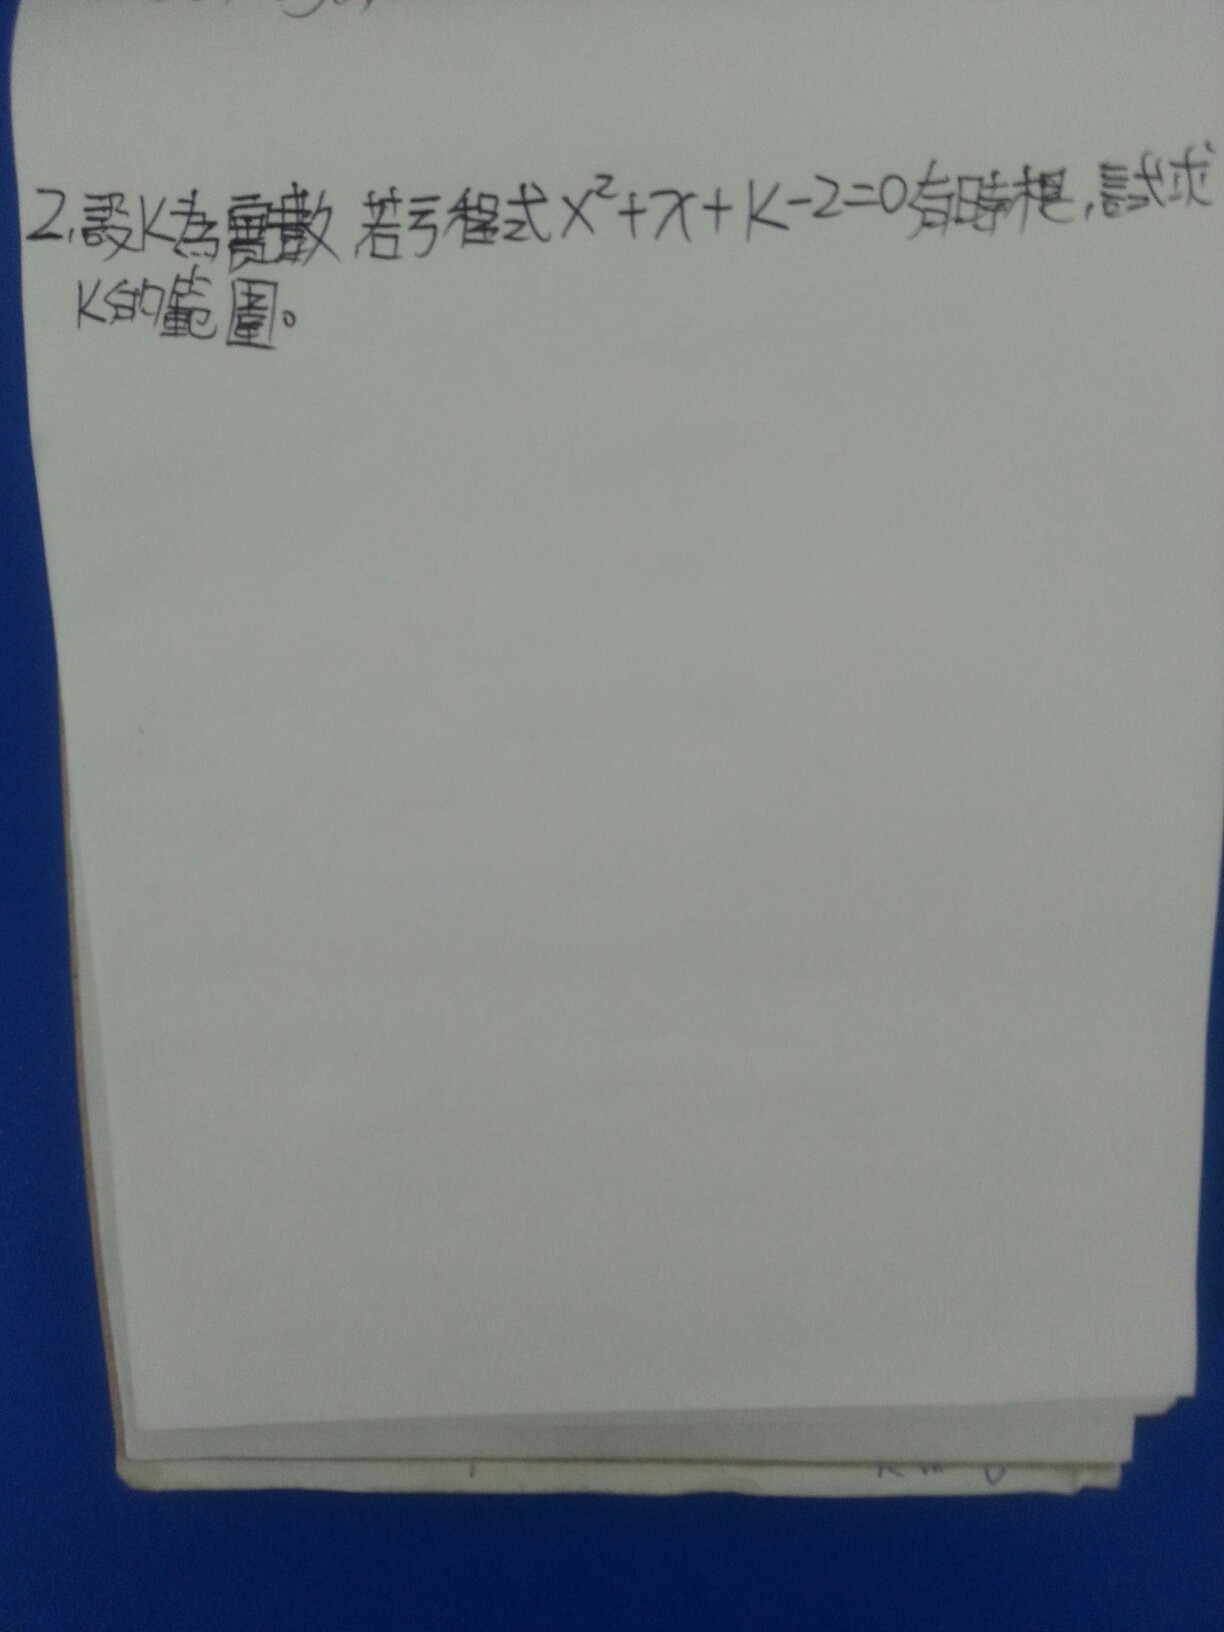 2.設K為實數 若方程式x²+x+K-2=0有時根,試求
K的範圍。